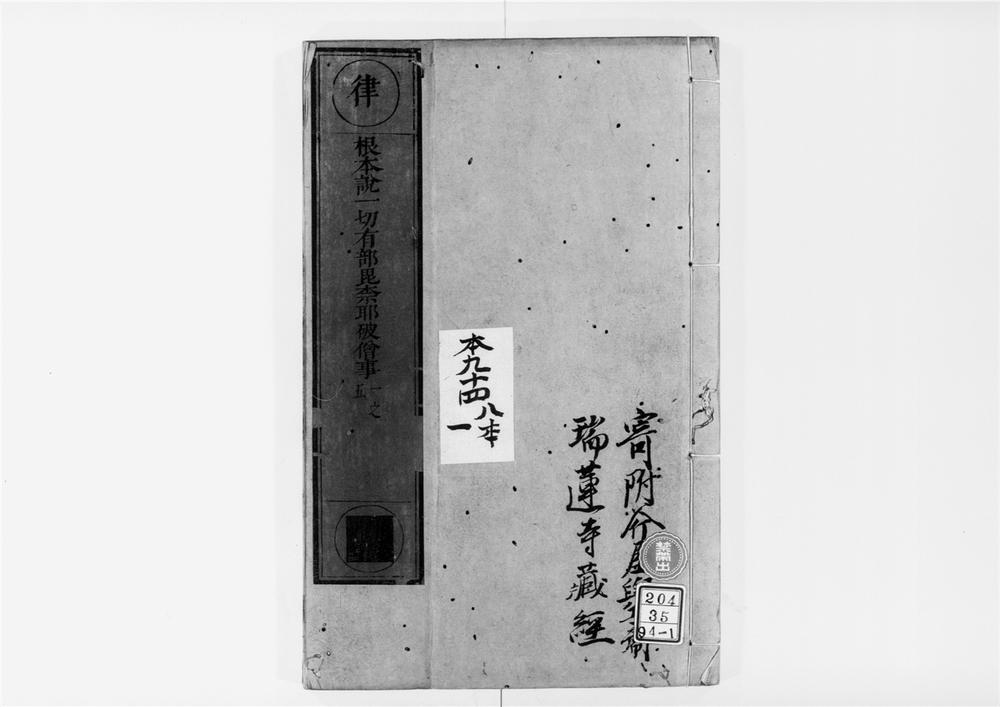 律
根本說一切有部毘奈耶破僧事
一之
五
本九十四
八本
一
寄附
瑞蓮寺藏經
禁帯出
204
35
94-1